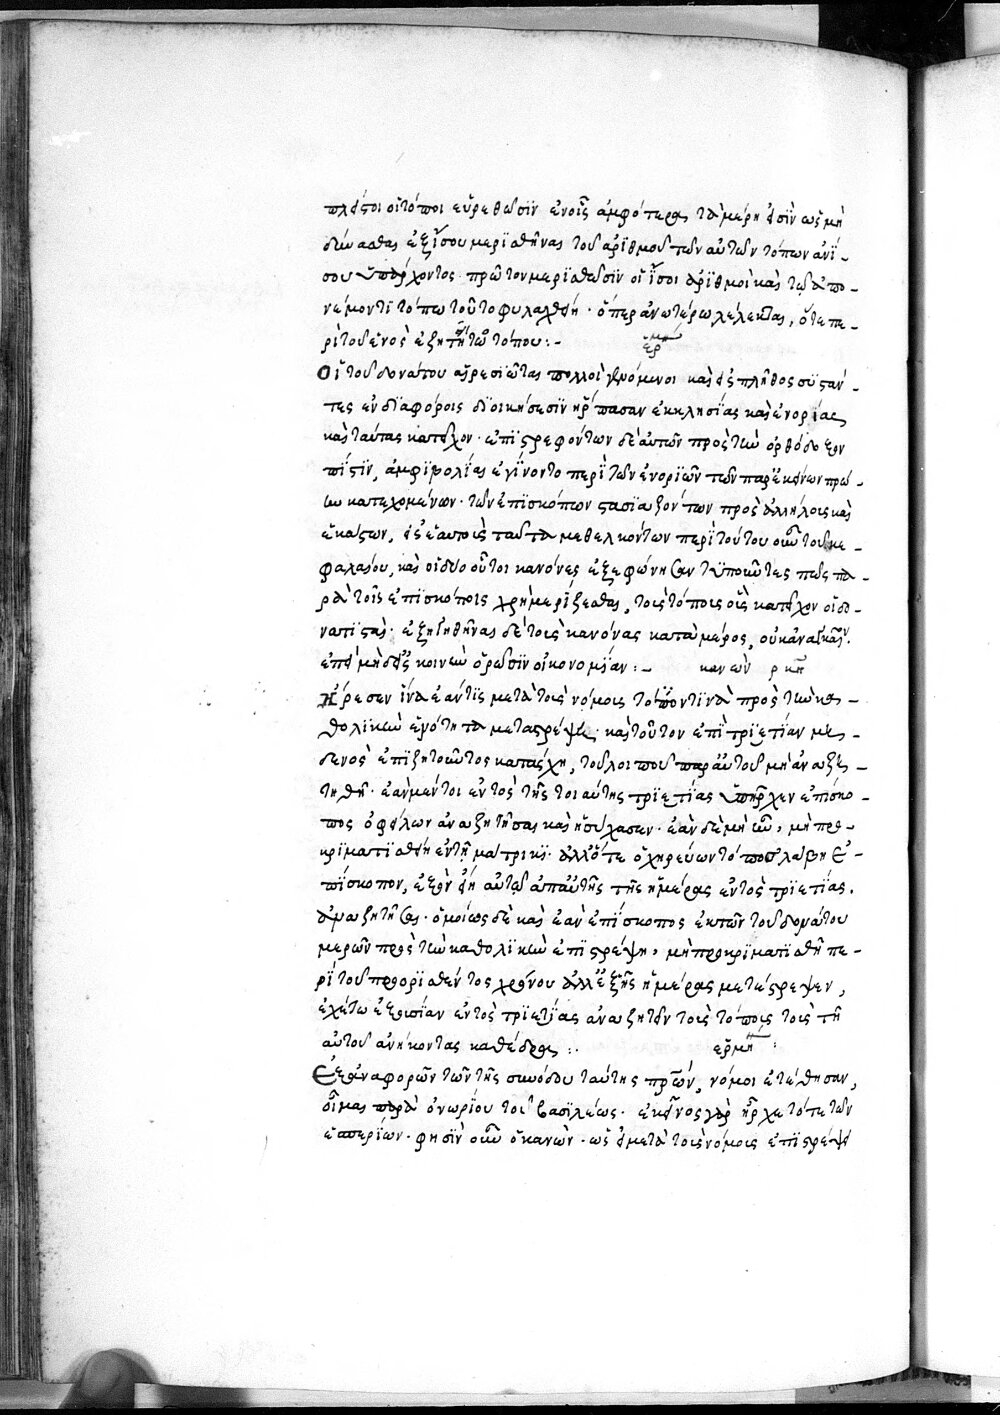 πλείστοι οἱ τόποι εὑρεθῶσιν ἐν οἷς ἀμφότερα τὰ μέρη εἰσὶν ὡς μὴ
δύνασθαι ἐξίσου μερισθῆναι τοῦ ἀριθμοῦ τῶν αὐτῶν τόπων ἀνί-
σου ὑπάρχοντος πρῶτον μερισθῶσιν οἱ ἴσοι ἀριθμοὶ καὶ τῷ ἀπο-
νέμοντι τόπῳ τοῦτο φυλαχθείη· ὅπερ ἀνωτέρω λέλεκται, ὅτε πε-
ρὶ τοῦ ἑνὸς ἐζητεῖτο τόπου:- ἑρμη
Οἱ τοῦ δονάτου αἱρεσιῶται πολλοὶ γενόμενοι καὶ εἰς πλῆθος συστάν-
τες ἐν διαφόροις διοικήσεσιν ἥρπασαν ἐκκλησίας καὶ ἐνορίας
καὶ ταύτας κατεῖχον· ἐπιστρεφόντων δὲ αὐτῶν πρὸς τὴν ὀρθόδοξον
πίστιν, ἀμφιβολίαι ἐγίνοντο περὶ τῶν ἐνοριῶν τῶν παρ' ἐκείνων πρώ-
ην κατεχομένων· τῶν ἐπισκόπων στασιαζόντων πρὸς ἀλλήλους καὶ
ἑκάστων, εἰς ἑαυτοὺς ταῦτα μεθελκόντων περὶ τούτου οὖν τοῦ κε-
φαλαίου, καὶ οἱ δύο οὗτοι κανόνες ἐξεφώνησαν τυποῦντες πῶς πα-
ρὰ τοῖς ἐπισκόποις χρὴ μερίζεσθαι, τοὺς τόπους οὓς κατεῖχον οἱ δο-
νατισταί· ἐξηγηθῆναι δὲ τοὺς κανόνας κατὰ μέρος, οὐκ ἀναγκαῖον.
ἐπεὶ μηδὲ κοινὴν ὁρῶσιν οἰκονομίαν:- κανὼν ρκη
Ἤρεσεν ἵνα ἐάν τις μετὰ τοὺς νόμους τόπον τινὰ πρὸς τὴν κα-
θολικὴν ἑνότητα μεταστρέψει· καὶ τοῦτον ἐπὶ τριετίαν μη-
δενὸς ἐπιζητοῦντος κατάσχῃ, τοῦ λοιποῦ παρ' αὐτοῦ μὴ ἀναζη-
τηθῇ· ἐὰν μέντοι ἐντὸς τῆς τοιαύτης τριετίας ὑπῆρχεν ἐπίσκο-
πος ὀφείλων ἀναζητῆσαι καὶ ἡσύχασεν· ἐὰν δὲ μὴ ἦν, μὴ προ-
κριματισθείη ἐν τῇ ματρικι· ἀλλ' ὅτε ὁ χηρεύων τόπος λάβῃ ἐ-
πίσκοπον, ἐξὸν εἴη αὐτῷ ἀπ' αὐτῆς τῆς ἡμέρας ἐντὸς τριετίας,
ἀναζητῆσαι· ὁμοίως δὲ καὶ ἐὰν ἐπίσκοπος ἐκ τῶν τοῦ δονάτου
μερῶν πρὸς τὴν καθολικὴν ἐπιστρέψῃ, μὴ προκριματισθῇ πε-
ρὶ τοῦ προορισθέντος χρόνου ἀλλ' ἐξ ἧς ἡμέρας μετέστρεψεν,
ἐχέτω ἐξουσίαν ἐντὸς τριετίας ἀναζητεῖν τοὺς τόπους τοὺς τῇ
αὐτοῦ ἀνήκοντας καθέδρᾳ:. ἑρμη:
Ἐξ ἀναφορῶν τῶν τῆς συνόδου ταύτης πρῶν, νόμοι ἐτέθησαν,
οἶμαι παρὰ ὁνωρίου τοῦ βασιλέως· ἐκεῖνος γὰρ ἦρχε τότε τῶν
ἑσπερίων· φησὶν οὖν ὁ κανών· ὡς εἰ μετὰ τοὺς νόμους ἐπιστρέψει